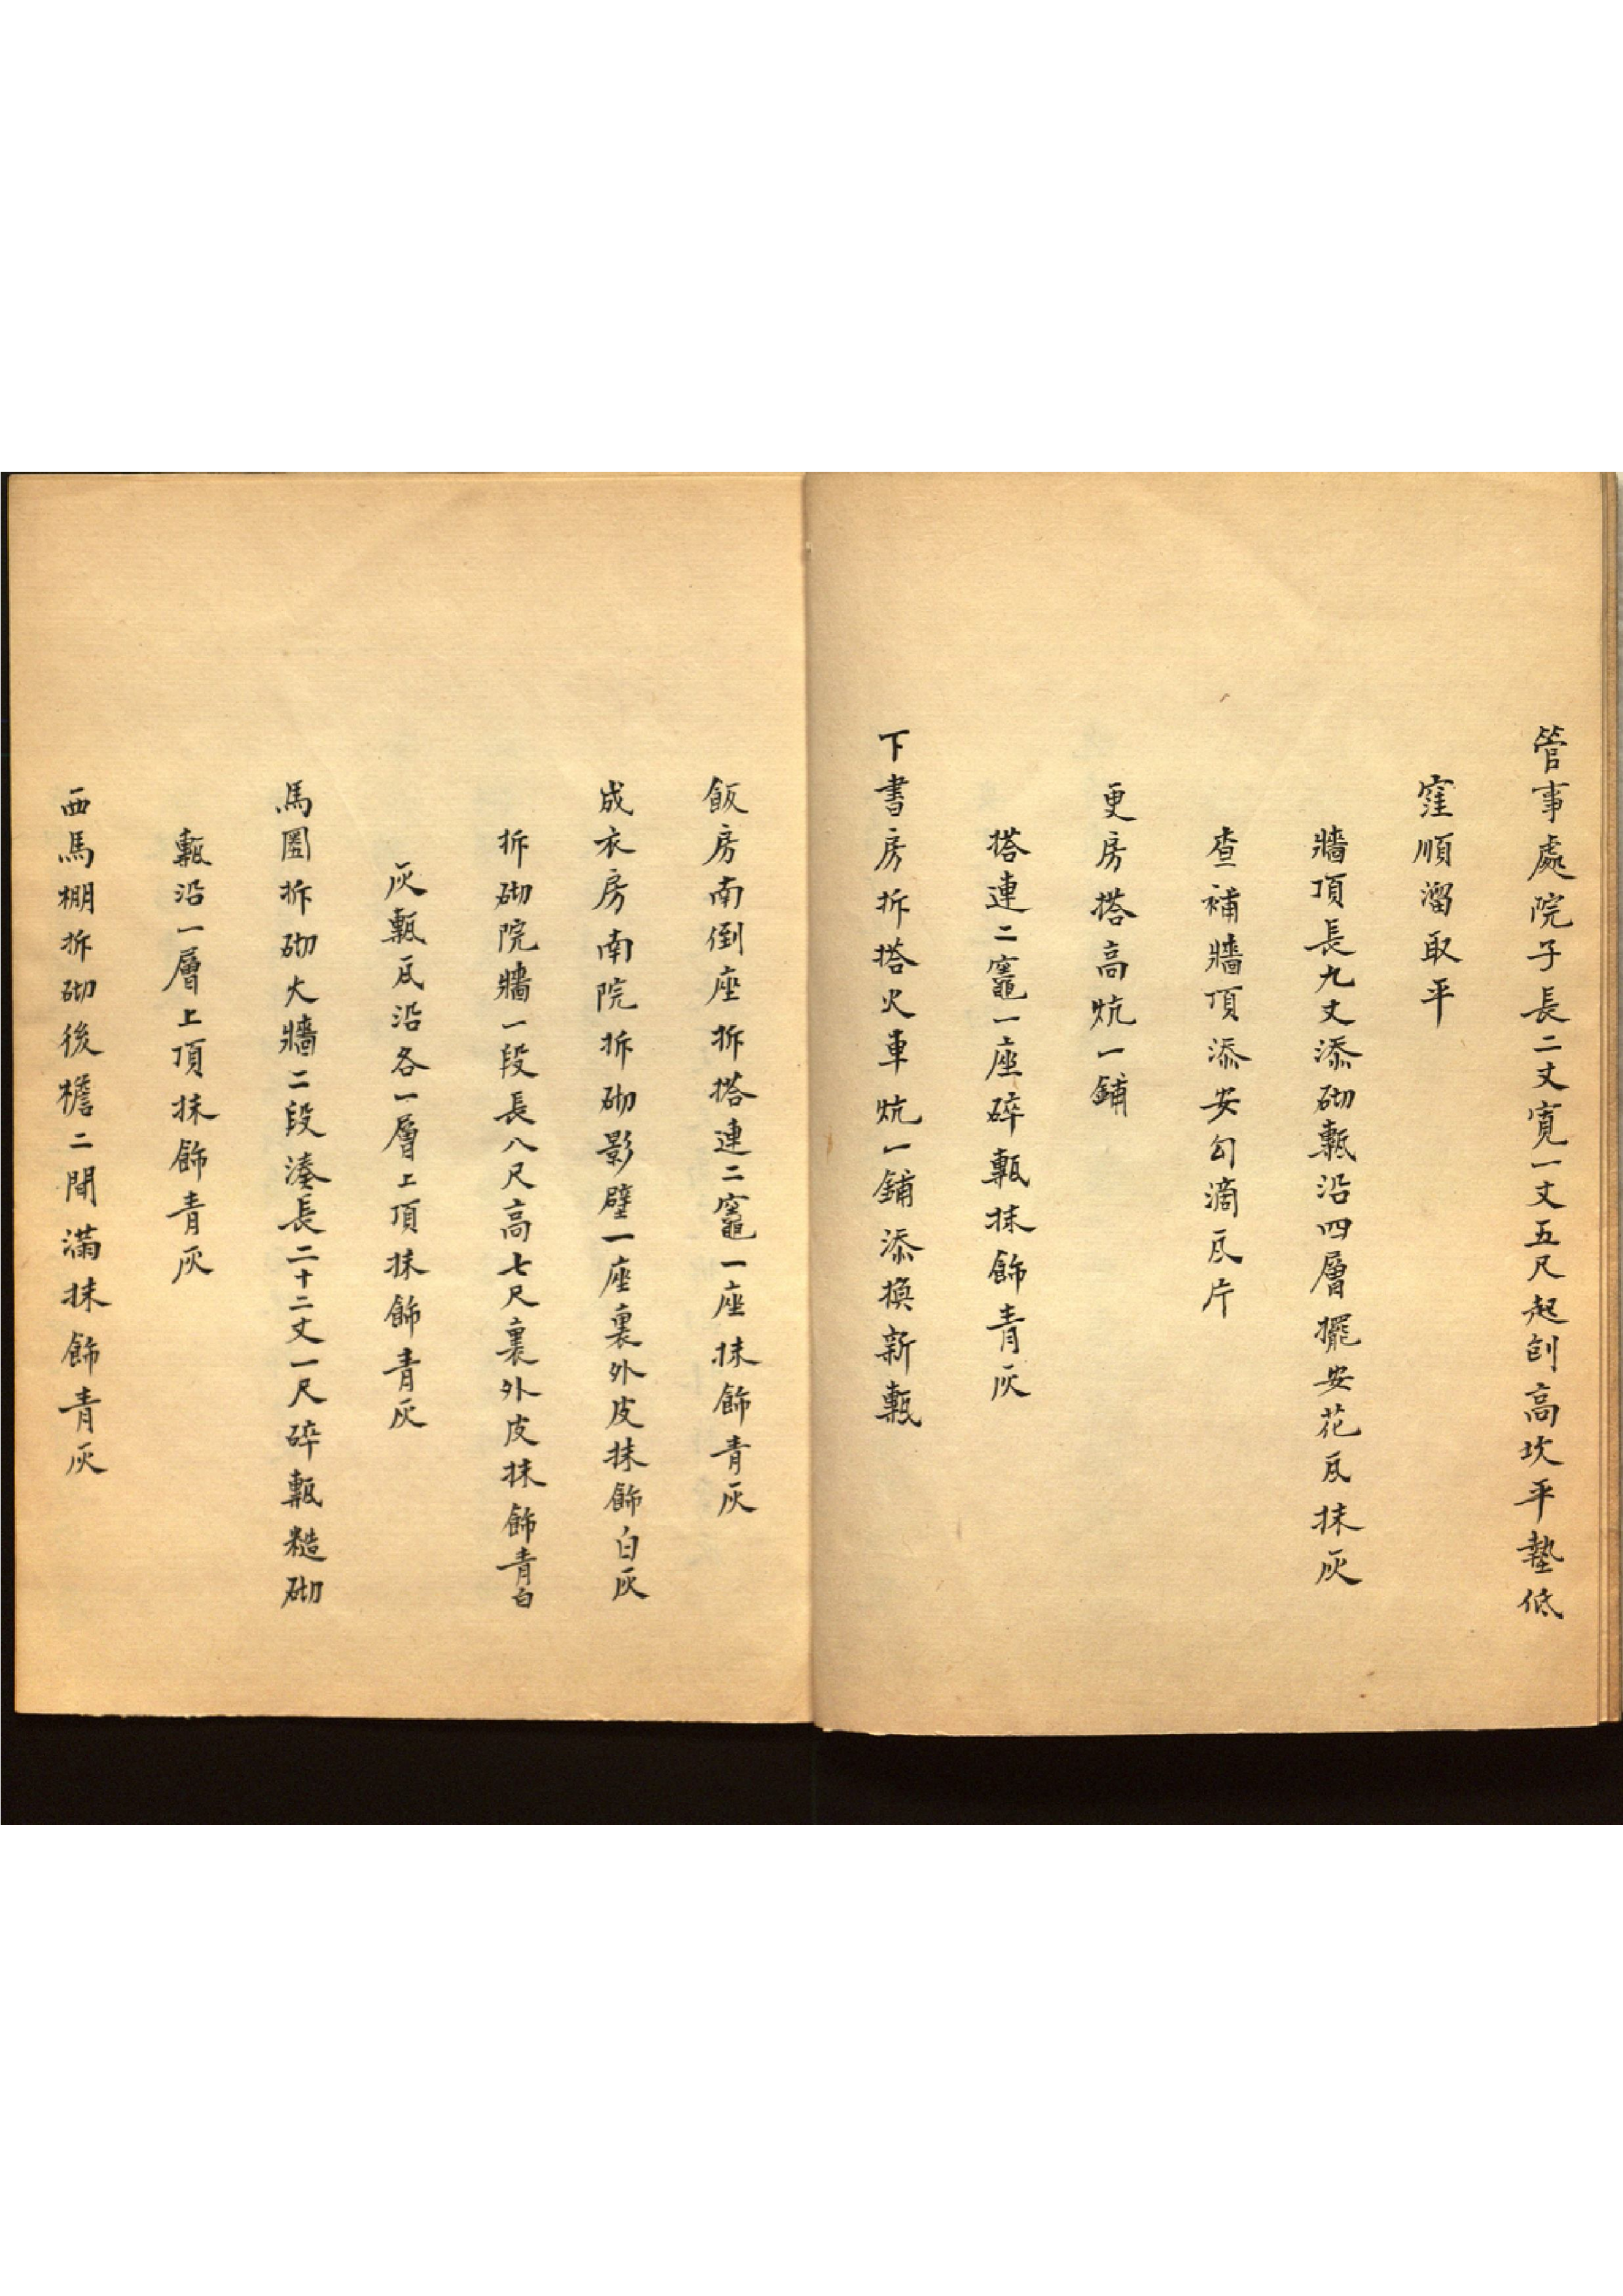 管事處院子長二丈寬一丈五尺起刨高坎平墊低
窪順溜取平
牆頂長九丈添砌甎沿四層擺安花瓦抹灰
查補牆頂添安勾滴瓦片
更房搭高炕一鋪
搭連二竈一座碎甎抹飾青灰
下書房拆搭火車炕一鋪添換新甎
飯房南倒座拆搭連二竈一座抹飾青灰
成衣房南院拆砌影壁一座裏外皮抹飾白灰
拆砌院牆一段長八尺高七尺裏外皮抹飾青白
灰甎瓦沿各一層上頂抹飾青灰
馬圈拆砌大牆二段湊長二十二丈一尺碎甎糙砌
甎沿一層上頂抹飾青灰
西馬棚拆砌後檐二間滿抹飾青灰